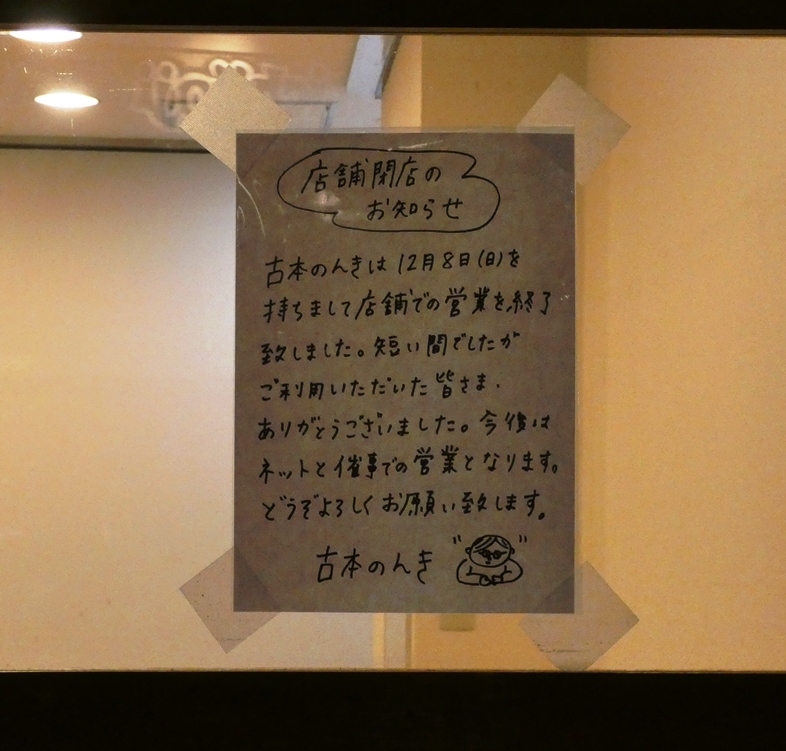 店舗閉店の
お知らせ
古本のんきは12月8日(日)を
持ちまして店舗での営業を終了
致しました。短い間でしたが
ご利用いただいた皆さま、
ありがとうございました。今後は
ネットと催事での営業となります。
どうぞよろしくお願い致します。
古本のんき